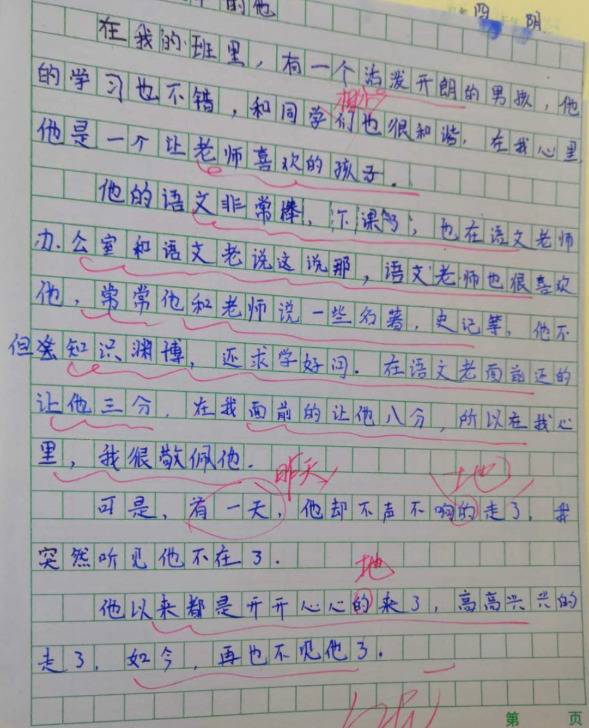 的他
四 阴
在我的班里，有一个活泼开朗的男孩，他
的学习也不错，和同学们也很和谐，在我心里
他是一个让老师喜欢的孩子。
他的语文非常棒，下课时，也在语文老师
办公室和语文老说这说那，语文老师也很喜欢
他，常常他和老师说一些名著，史记等，他不
但知识渊博，还求学好问。在语文老面前还的
让他三分，在我面前的让他八分，所以在我心
里，我很敬佩他。
昨天 地
可是，有一天，他却不声不响的走了，我
突然听见他不在了。
地
他以来都是开开心心的来了，高高兴兴的
走了，如今，再也不见他了。
第 页